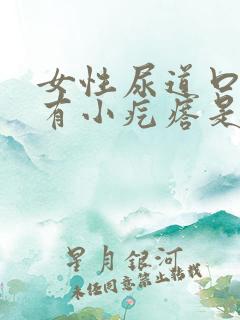 女性尿道口
有小疙瘩是
星月銀河
未经同意禁止转载